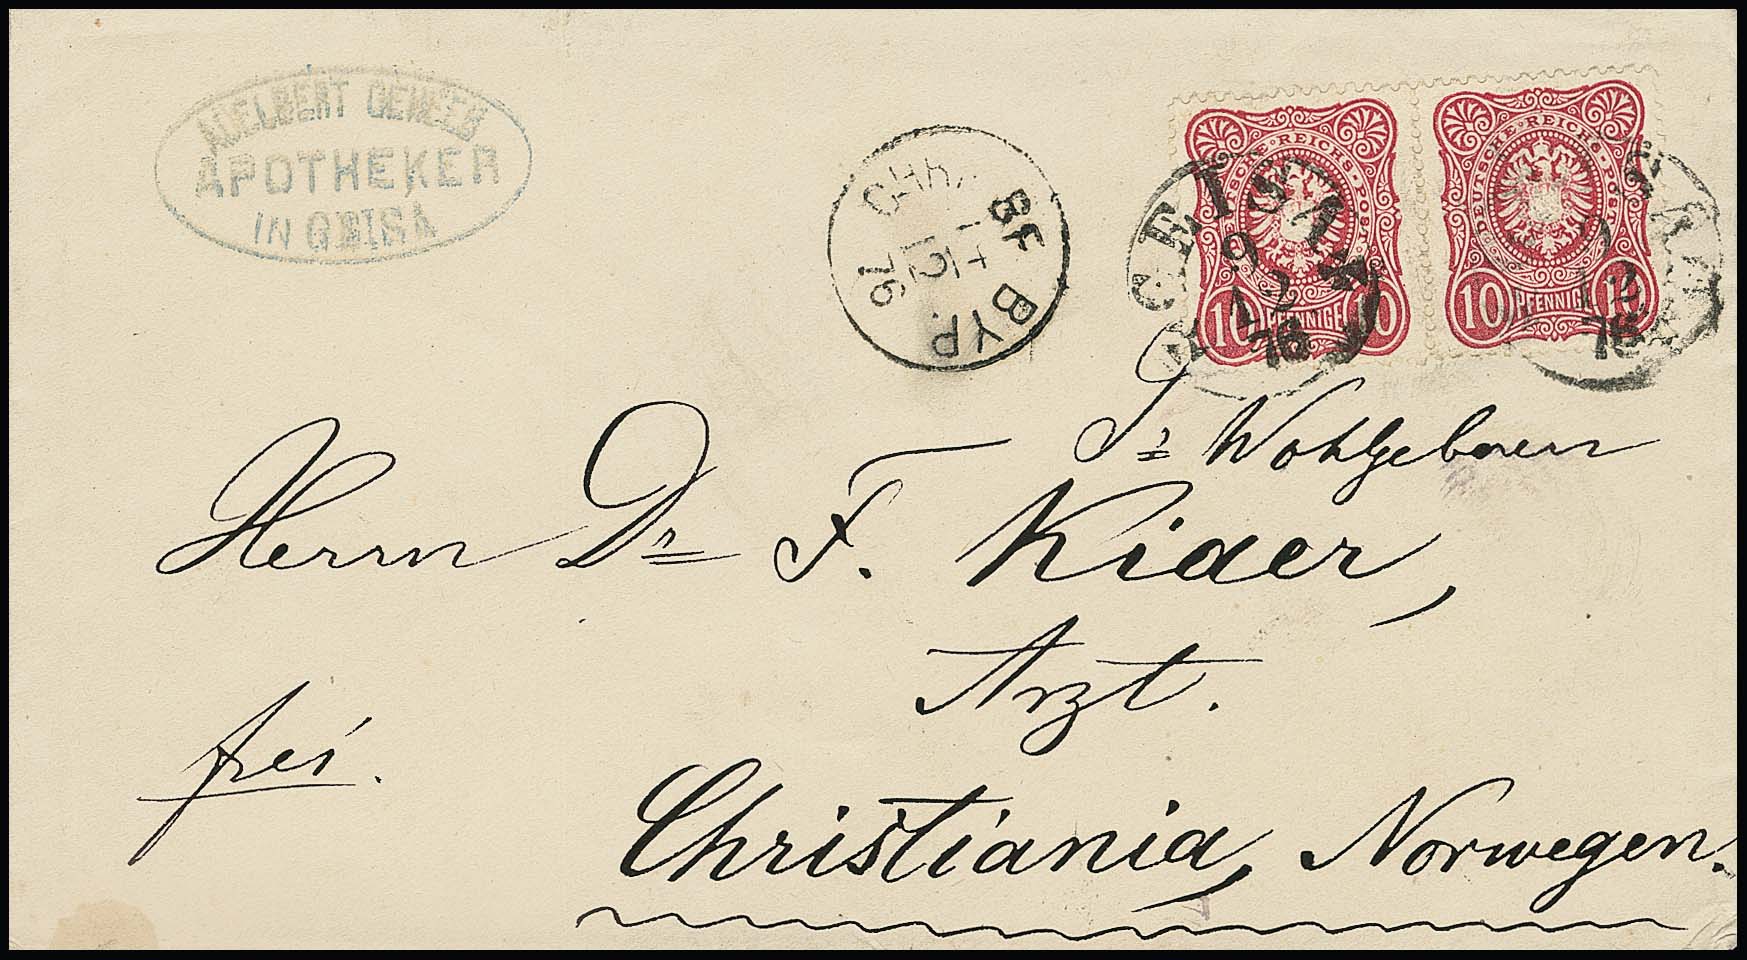 ADELBERT GEHEEB
APOTHEKER
IN GEISA
CHRA
BF BYP.
12
76
DEUTSCHE REICHS-POST
10 PFENNIGE 10
DEUTSCHE REICHS-POST
10 PFENNIGE 10
GEISA
9
12
76
GEISA
9
12
76
Sr Wohlgeboren
Herrn Dr F. Kiaer,
Arzt.
frei.
Christiania, Norwegen.